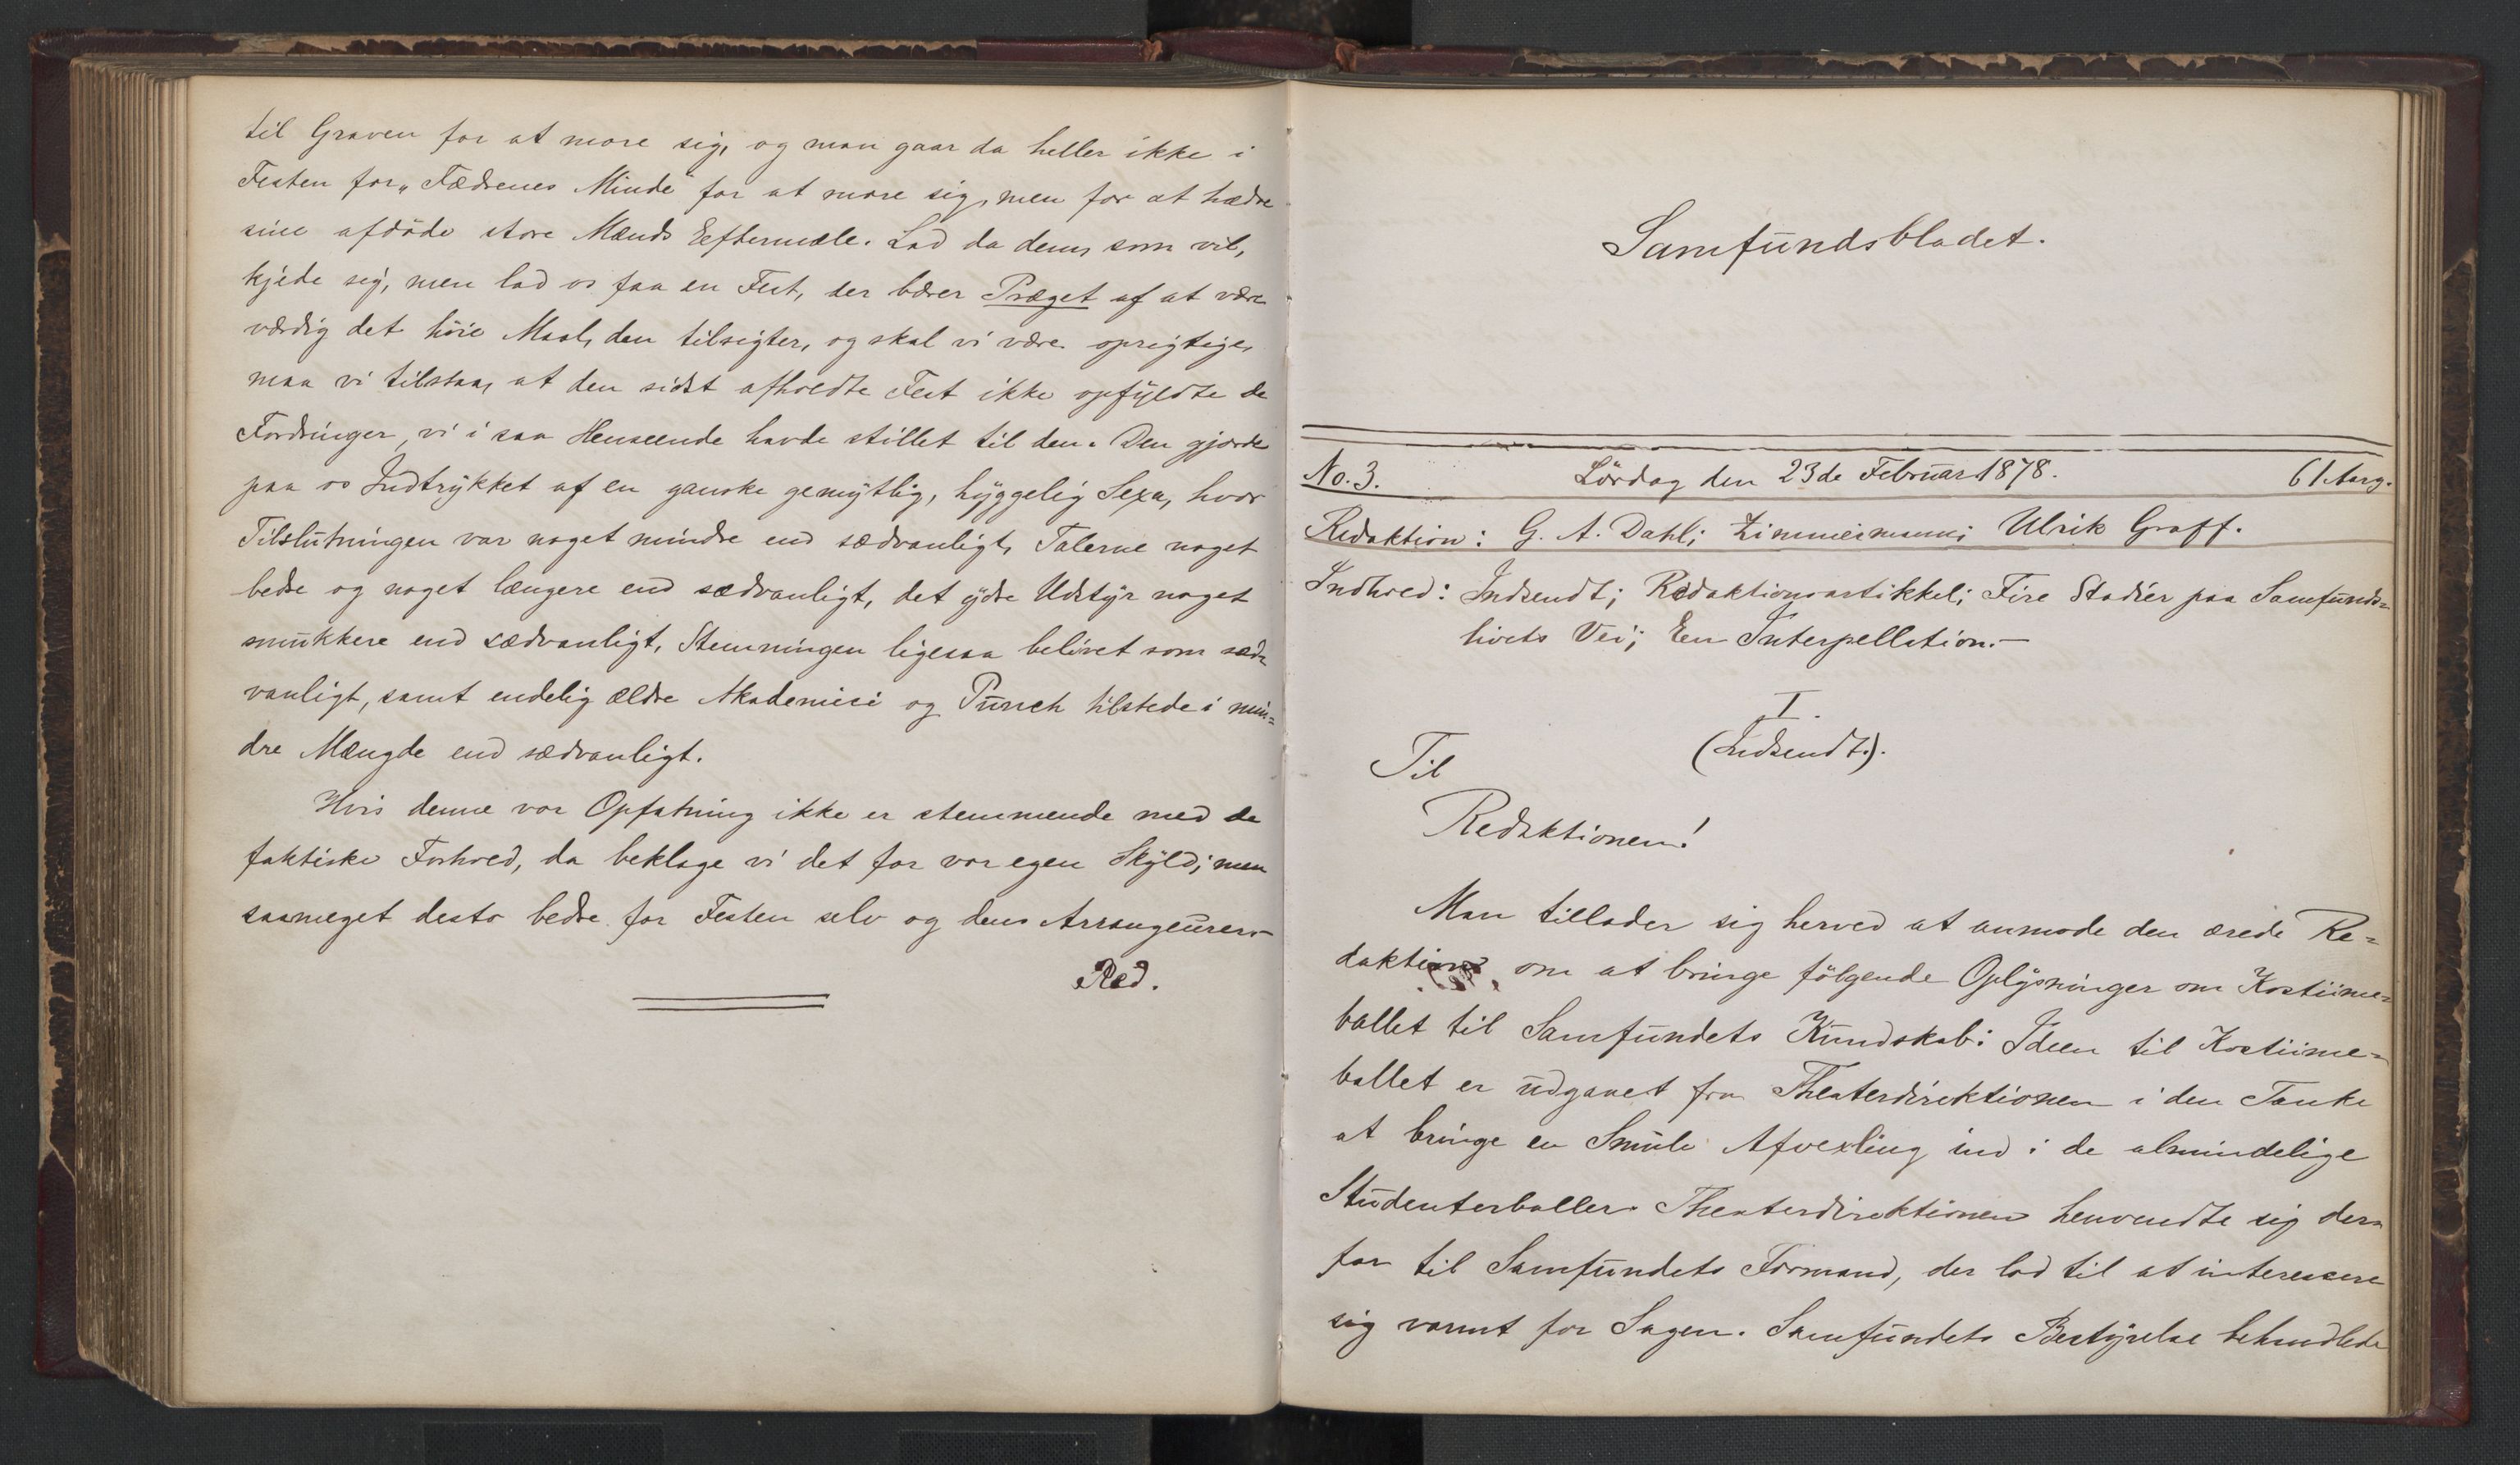 til Graven for at more sig, og man gaar da heller ikke i
Festen for „Fædrenes Minde“ for at more sig, men for at hædre
sine afdöde store Mænds Eeftermæle. Lad da dem, som vil,
kjede sig, men lad os faa en Fest, der bærer Præget af at være
værdig det höie Maal, den tilsigter, og skal vi være oprigtige,
maa vi tilstaa, at den sidst afholdte Fest ikke opfyldte de
Fordringer, vi i saa Henseende havde stillet til den. Den gjorde
paa os Indtrykket af en ganske gemytlig, hyggelig Sexa, hvor
Tilslutningen var noget mindre end sædvanligt, Talerne noget
bedre og noget længere end sædvanligt, det ydre Udstyr noget
smukkere end sædvanligt, Stemningen ligesaa belivet som sæd=
vanligt, samt endelig ældre Akademici og Punch tilstede i min=
dre Mængde end sædvanligt.
Hvis denne vor Opfatning ikke er stemmende med de
faktiske Forhold, da beklage vi det for vor egen Skyld; men
saameget desto bedre for Festen selv og dens Arrangeurer.
Red.
Samfundsbladet.
No. 3. Lördag den 23de Februar 1878. 61 Aarg.
Redaktion: G. A. Dahl; Zimmermann; Ulrik Graff.
Indhold: Indsendt; Redaktionsartikkel; Fire Stadier paa Samfunds=
livets Vei; En Interpellation.—
I.
(Indsendt.).
Til
Redaktionen!
Man tillader sig herved at anmode den ærede Re=
daktion om at bringe fölgende Oplysninger om Kostüme=
ballet til Samfundets Kundskab: Ideen til Kostüme=
ballet er udgaaet fra Theaterdirektionen i den Tanke
at bringe en Smule Afvexling ind i de almindelige
Studenterballer. Theaterdirektionen henvendte sig der=
for til Samfundets Formand, der lod til at interessere
sig varmt for Sagen. Samfundets Bestyrelse behandlede